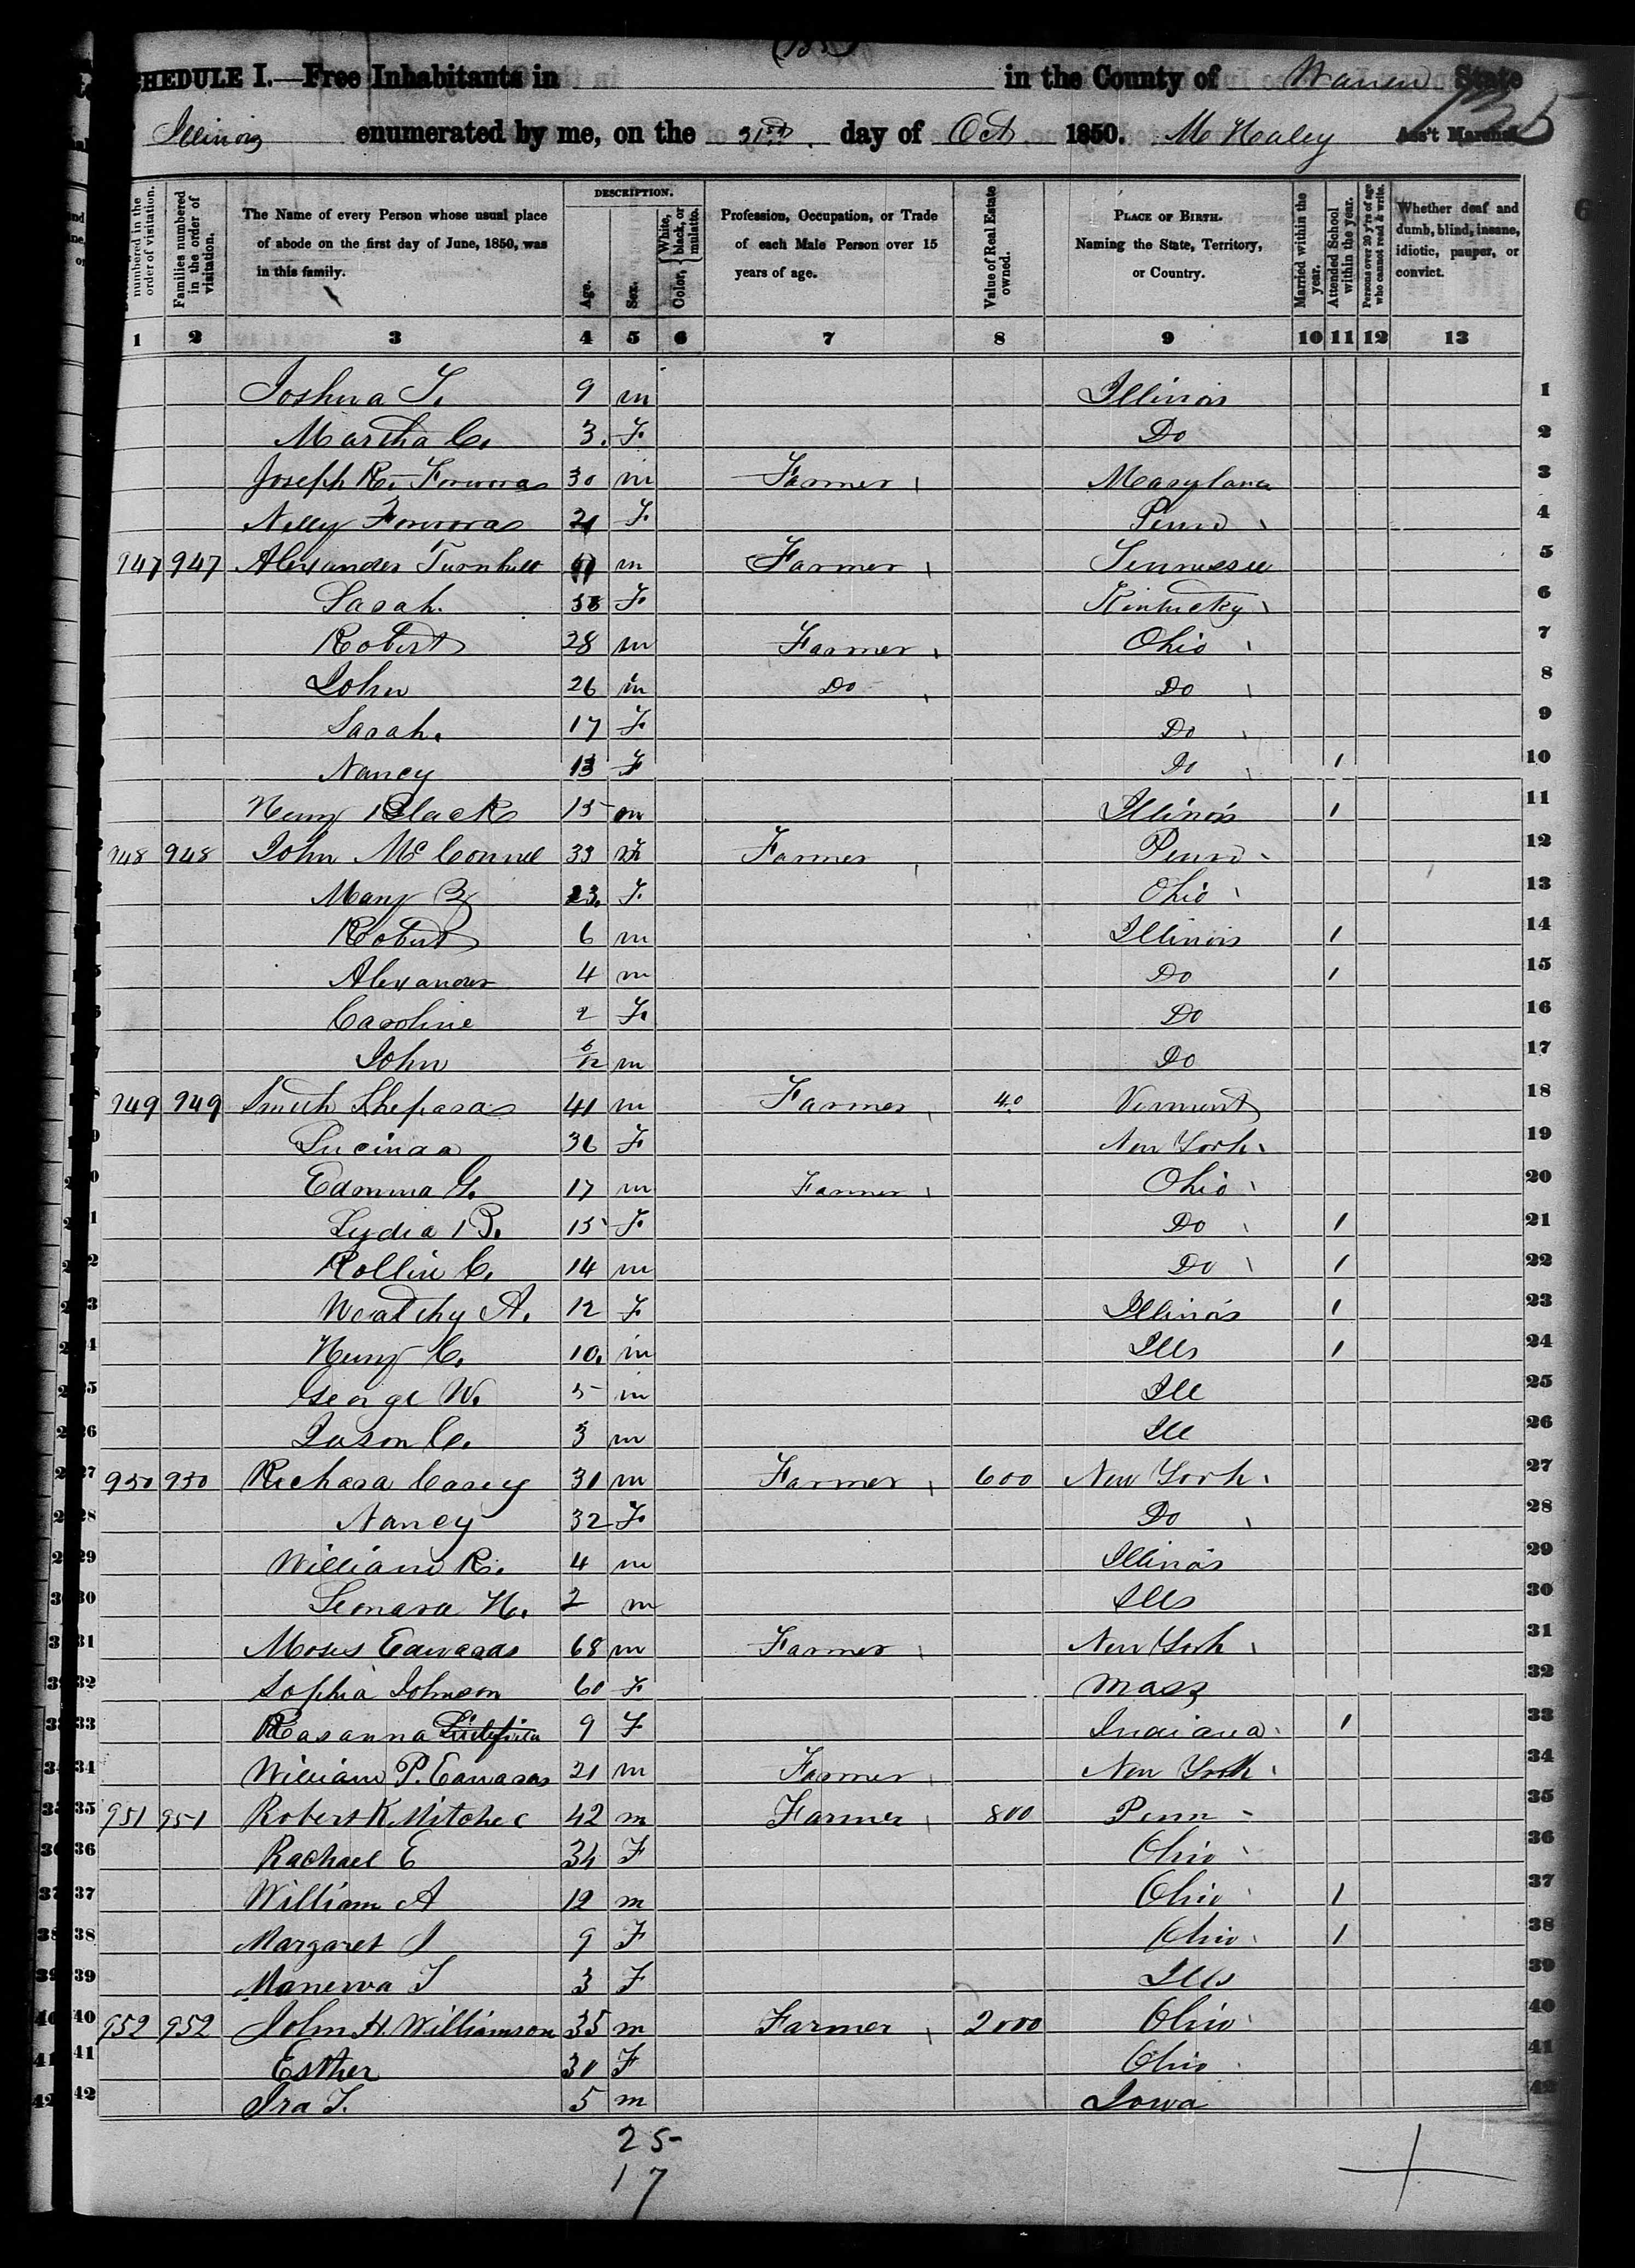 SCHEDULE I.—Free Inhabitants in in the County of Warren State
Illinois enumerated by me, on the 31st day of Oct 1850. Ass't Marshal
135
DESCRIPTION.
numbered in the order of visitation.
Families numbered in the order of visitation.
The Name of every Person whose usual place of abode on the first day of June, 1850, was in this family.
Age.
Sex.
Color, White, black, or mulatto.
Profession, Occupation, or Trade of each Male Person over 15 years of age.
Value of Real Estate owned.
PLACE OF BIRTH. Naming the State, Territory, or Country.
Married within the year.
Attended School within the year.
Persons over 20 y'rs of age who cannot read & write.
Whether deaf and dumb, blind, insane, idiotic, pauper, or convict.
1 2 3 4 5 6 7 8 9 10 11 12 13
Joshua T. 9 m Illinois 1
Martha C. 3. F. Do 2
Joseph R. 30 m Farmer Maryland 3
Nelly 21 F. Penn 4
947 947 Alexander Turnbull m Farmer Tennessee 5
Sarah F Kentucky 6
Robert 28 m Farmer Ohio 7
John 26 m Do Do 8
Sarah. 17 F Do 9
Nancy 13 F Do 1 10
Henry Black 15 m Illinois 1 11
948 948 John McConnel 33 m Farmer Penn 12
Mary 23. F. Ohio 13
Robert 6 m Illinois 1 14
Alexander 4 m Do 1 15
Caroline 2 F. Do 16
John 6/12 m Do 17
949 949 Smith Shepard 41 m Farmer 40 Vermont 18
Lucinda 36 F New York 19
Edmund G. 17 m Farmer Ohio 20
Lydia B. 15 F Do 1 21
Rollin C. 14 m Do 1 22
Wealthy A. 12 F Illinois 1 23
Henry C. 10. m Ills 1 24
George W. 5 m Ill 25
Jason C. 3 m Ill 26
950 950 Richard Casey 31 m Farmer 600 New York 27
Nancy 32 F Do 28
William R. 4 m Illinois 29
Leonard H. 2 m Ills 30
Moses Edwards 68 m Farmer New York 31
Sophia Johnson 60 F Mass 32
Rosanna 9 F Indiana 1 33
William P. Edwards 21 m Farmer New York 34
951 951 Robert K. Mitchel 42 m Farmer 800 Penn 35
Rachael E 34 F Ohio 36
William A 12 m Ohio 1 37
Margaret J 9 F Ohio 1 38
Manerva T 3 F Ills 39
952 952 John H. Williamson 35 m Farmer 2000 Ohio 40
Esther 30 F Ohio 41
Ira T. 5 m Iowa 42
25
17